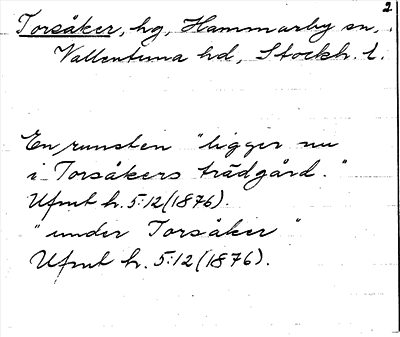 2
Torsåker, hg, Hammarby sn,
Vallentuna hd, Stockh. l.
En runsten "ligger nu
i Torsåkers trädgård."
Ufmt h. 5:12 (1876).
"under Torsåker"
Ufmt h. 5:12 (1876).